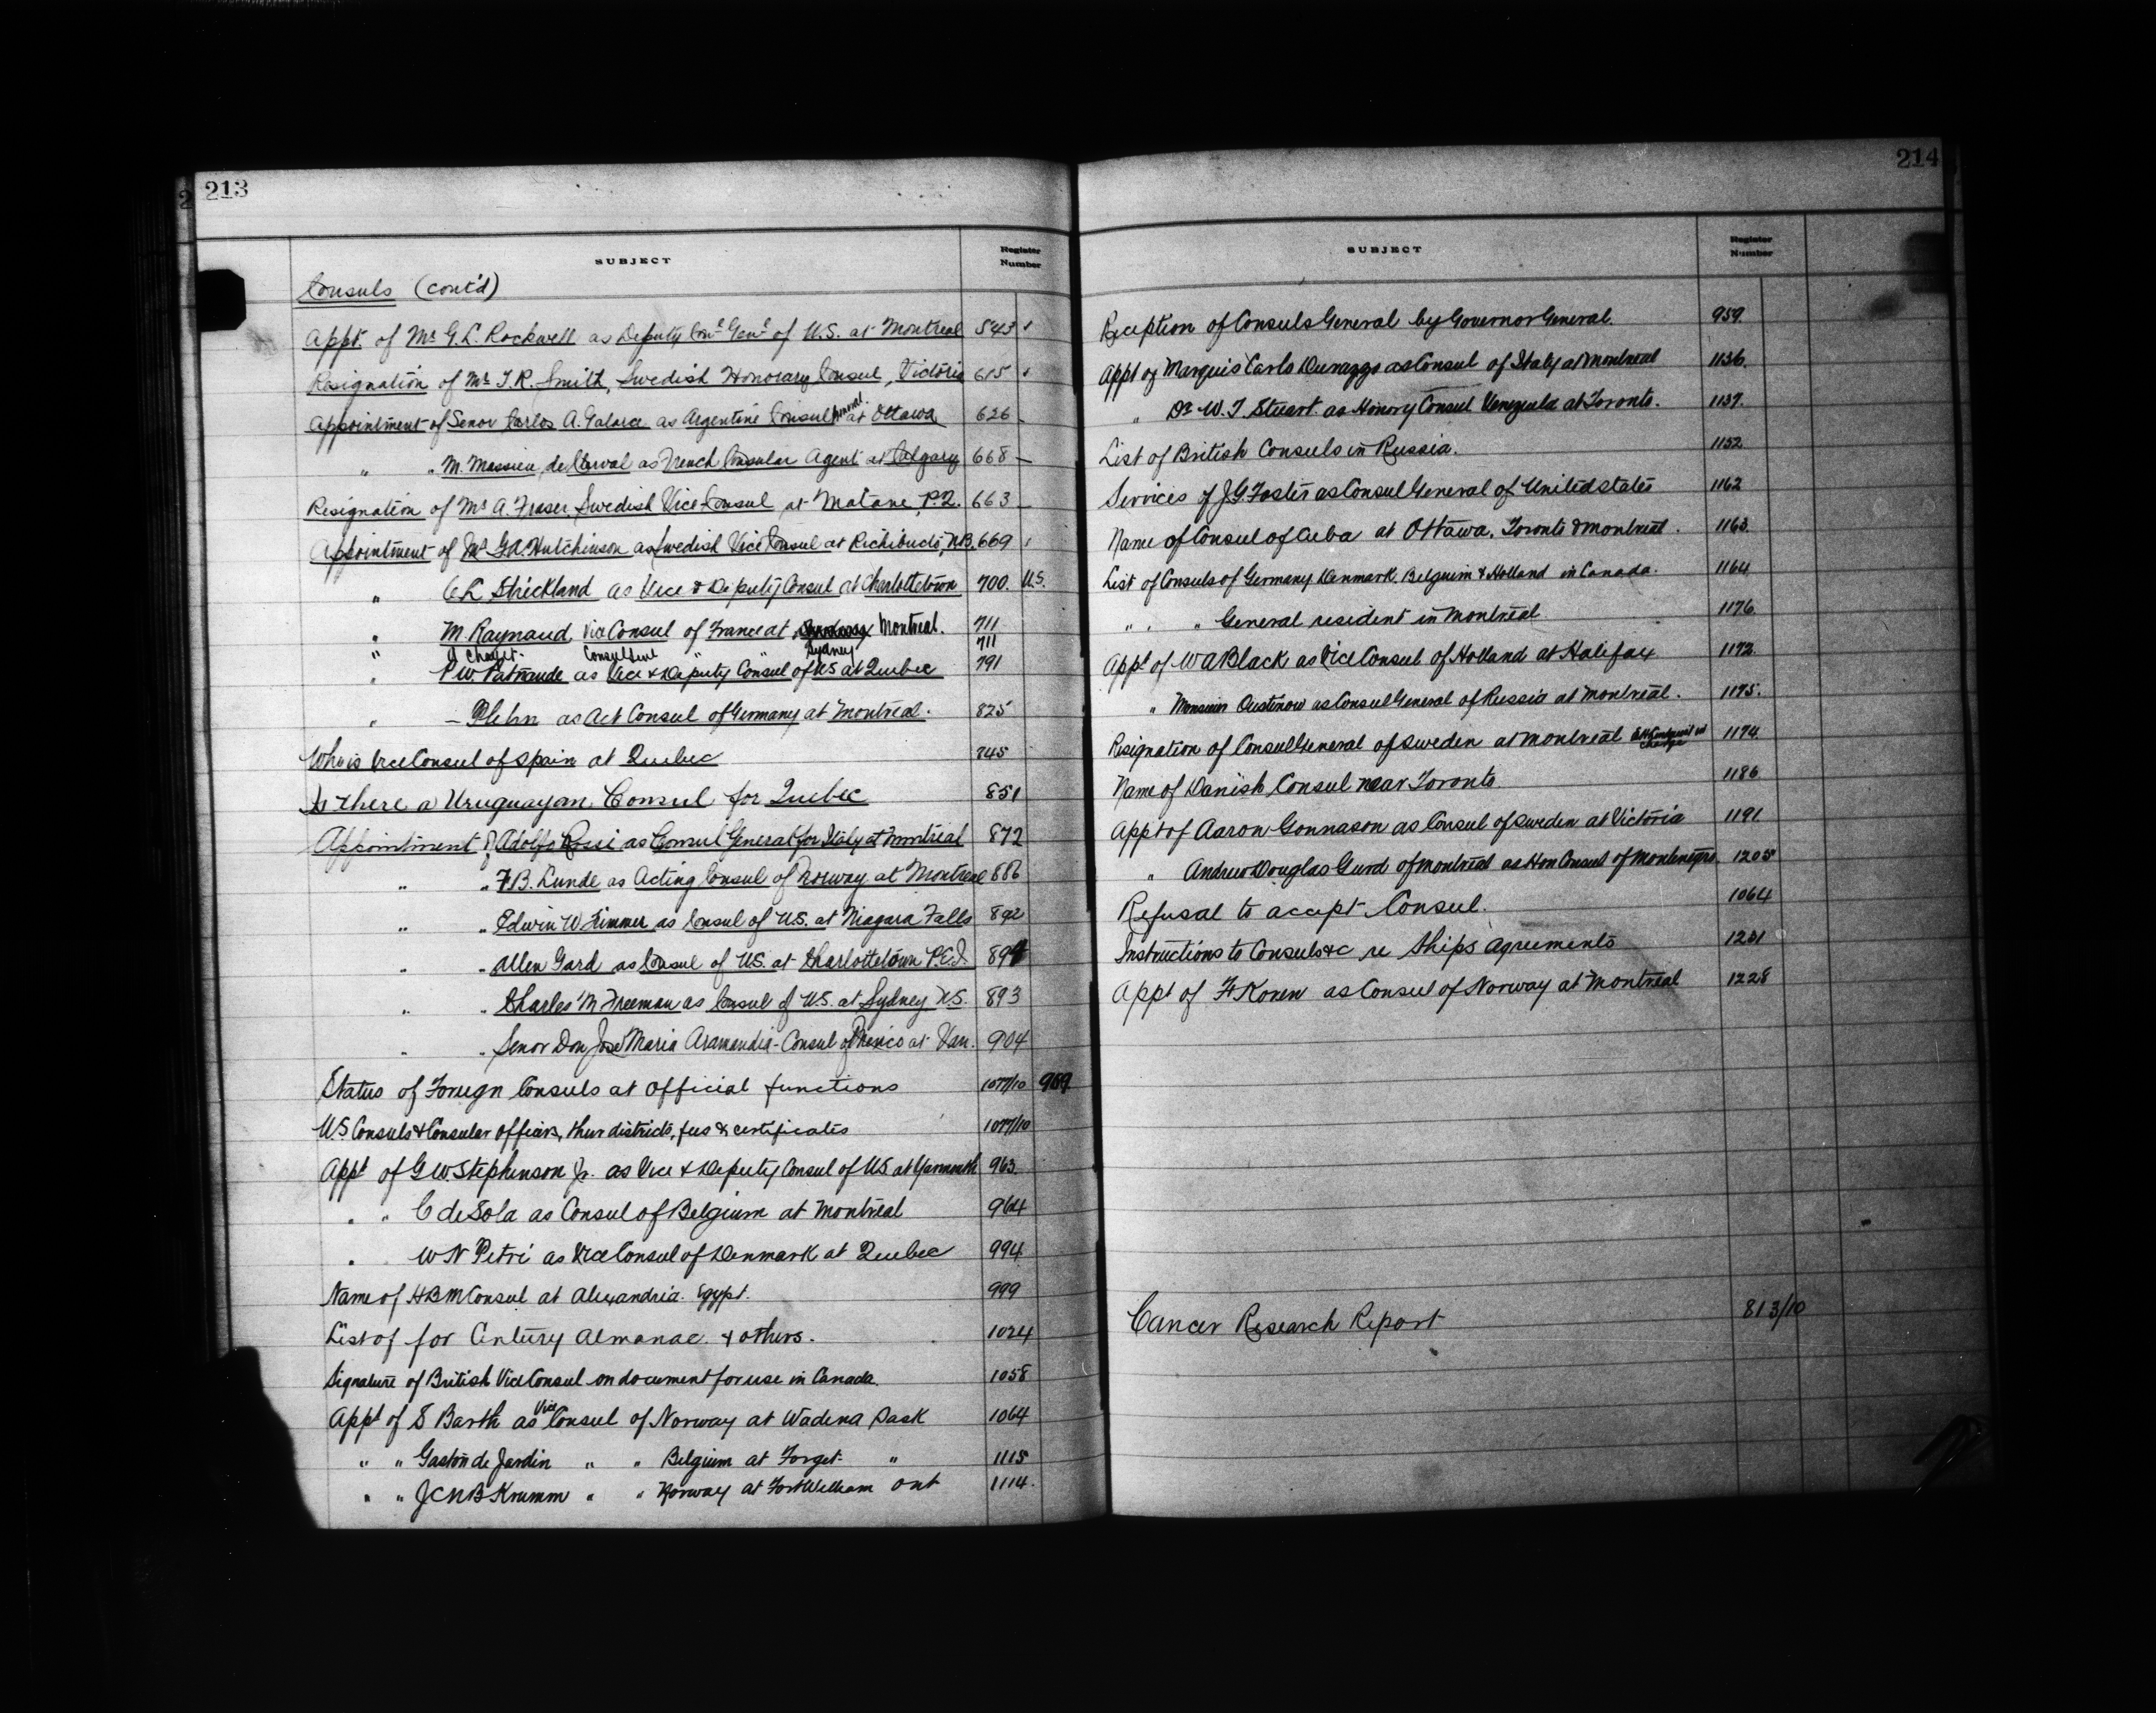 213
SUBJECT
Register Number
Consuls (cont'd)
Appt. of Mr G.L. Rockwell as Deputy Conl Genl of U.S. at Montreal 543
Resignation of Mr T.R. Smith, Swedish Honorary Consul, Victoria 615
Appointment of Senor Carlos A. Galarce as Argentine Consul General at Ottawa 626
" " M. Massieu de Clerval as French Consular Agent at Calgary 668
Resignation of Mr A. Fraser, Swedish Vice Consul at Matane, P.Q. 663
Appointment of Mr G.A. Hutchinson as Swedish Vice Consul at Richibucto, N.B. 669
" C L Strickland as Vice & Deputy Consul at Charlottetown 700. U.S.
" M. Raynaud, Vice Consul of France at Montreal. 711
" Consul " " Sydney 711
" P W Patnaude as Vice & Deputy Consul of US at Quebec 791
" – Plehn as Act Consul of Germany at Montreal. 825
Who is Vice Consul of Spain at Quebec 745
Is there a Uruguayan Consul for Quebec 851
Appointment of Adolfo Rossi as Consul General for Italy at Montreal 872
" " F.B. Lunde as Acting Consul of Norway at Montreal 886
" " Edwin W Trimmer as Consul of U.S. at Niagara Falls 892
" " Allen Gard as Consul of U.S. at Charlottetown P.E.I. 894
" " Charles M Freeman as Consul of U.S. at Sydney N.S. 893
" " Senor Don José Maria Aramendia - Consul of Mexico at Van. 904
Status of Foreign Consuls at Official functions 1077/10 959
US Consuls & Consular officers, their districts, fees & certificates 1077/10
Appt of G W Stephinson Jr. as Vice & Deputy Consul of US at Yarmouth 963.
" " C de Sola as Consul of Belgium at Montreal 964
" W N Petri as Vice Consul of Denmark at Quebec 994
Name of H B M Consul at Alexandria. Egypt. 999
List of for Century Almanac & others. 1024
Signature of British Vice Consul on document for use in Canada. 1058
Appt of S Barth as Vice Consul of Norway at Wadena Sask 1064
" " Gaston de Jardin " " Belgium at Forget " 1115
" " J C N B Krumm " " Norway at Fort William Ont 1114.
214
SUBJECT
Register Number
Reception of Consuls General by Governor General. 959.
Appt of Marquis Carlo Durazzo as Consul of Italy at Montreal 1136.
" Dr W. T Stuart as Honory Consul Venezuela at Toronto. 1137.
List of British Consuls in Russia. 1152
Services of J.G. Foster as Consul General of United States 1162
Name of Consul of Cuba at Ottawa, Toronto & Montreal. 1163.
List of Consuls of Germany Denmark, Belguim & Holland in Canada. 1164
" " " General resident in Montreal 1176.
Appt of W A Black as Vice Consul of Holland at Halifax 1172.
" Monsieur Oustinow as Consul General of Russia at Montreal. 1175.
Resignation of Consul General of Sweden at Montreal in charge 1174.
Name of Danish Consul near Toronto. 1186
Appt of Aaron Gonnason as Consul of Sweden at Victoria 1191
" Andrew Douglas Gurd of Montreal as Hon Consul of Montenegro 1205
Refusal to accept Consul. 1064
Instructions to Consuls &c re Ships Agreements 1201
Appt of F Koren as Consul of Norway at Montreal 1228
Cancer Research Report 813/10